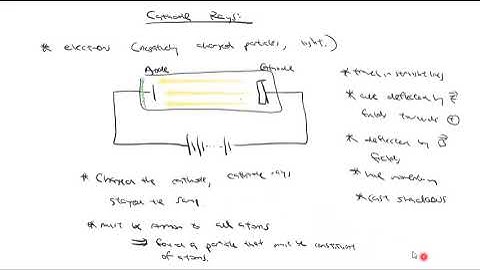 Cathode Rays:
* electrons (negatively charged particles, light.)
Anode
Cathode
* travel in straight lines
* are deflected by E
fields towards +
* deflected by B
fields
* have momentum
* cast shadows
* Changed the cathode, cathode rays
stayed the same
* must be common to all atoms
⇒ found a particle that must be constituent
of atoms.